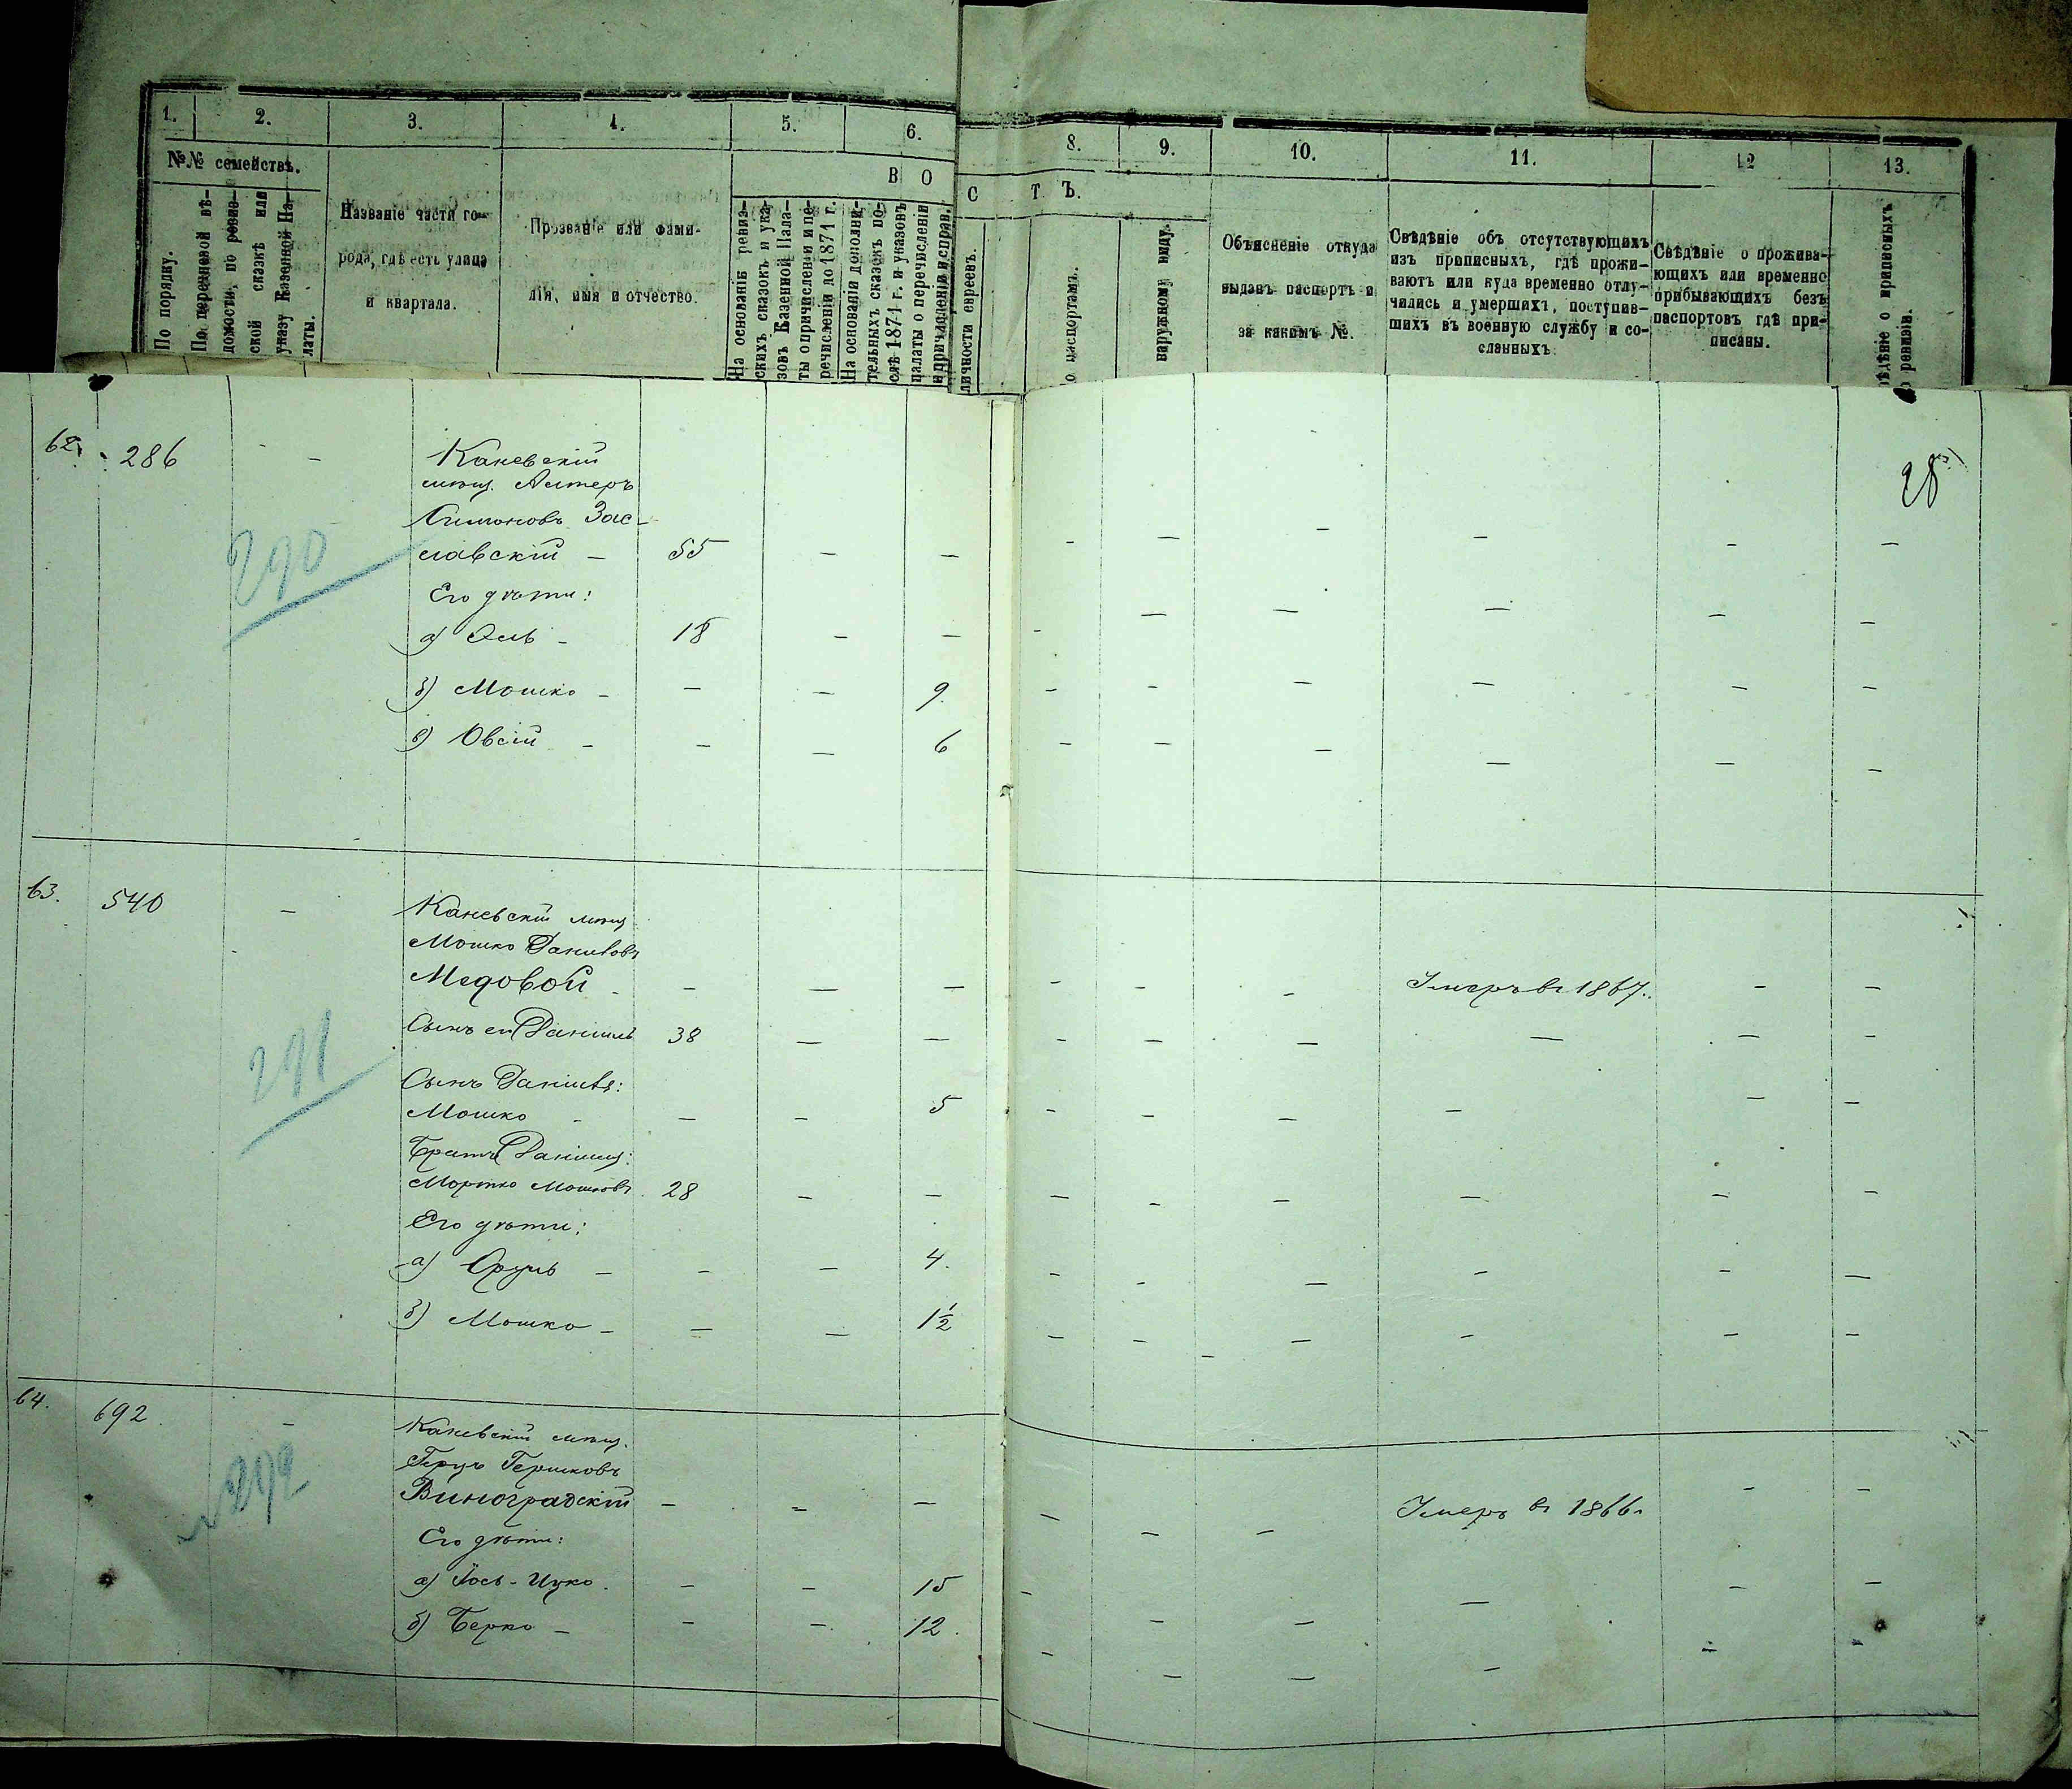 1. 2. 3. 4. 5. 6. 8. 9. 10. 11. 12 13.
№№ семействъ.
В О
С Т Ъ.
По порядку.
По перечневой вѣ-
домости, по ревиз-
ской сказкѣ или
указу Казенной Па-
латы.
Названіе части го-
рода, гдѣ есть улица
и квартала.
Прозваніе или фами-
лія, имя и отчество.
На основаніи ревиз-
скихъ сказокъ и ука-
зовъ Казенной Пала-
ты о причисленіи и пе-
речисленіи до 1874 г.
На основаніи дополни-
тельныхъ сказокъ по-
слѣ 1874 г. и указовъ
палаты о перечисленіи
личности евреевъ.
о паспортамъ.
наружному виду.
Объясненіе откуда
выданъ паспортъ и
за какимъ №.
Свѣдѣніе объ отсутствующихъ
изъ приписныхъ, гдѣ прожи-
ваютъ или куда временно отлу-
чились и умершихъ, поступив-
шихъ въ военную службу и со-
сланныхъ.
Свѣдѣніе о прожива-
ющихъ или временно
прибывающихъ безъ
паспортовъ гдѣ при-
писаны.
ѣдѣніе о приписныхъ
о ревизіи.
62. 286 - Каневскій
28
мѣщ.
Симоновъ Зас-
290
славскій - 55 - -
Его дѣти:
а) - 18 - -
б) Мошко - - - 9
в) Овсій - - - 6
63. 540 - Каневскій мѣщ.
Мошко Даниловъ
Медовой - - - - Умеръ въ 1867.
Сынъ его Даніилъ 38 - -
291
Сынъ Даніила:
Мошко - - - 5
Братъ Даніила:
Мортко Мошковъ 28 - -
Его дѣти:
а) Сруль - - - 4.
б) Мошко - - - 1½
64. 692 - Каневскій мѣщ.
292
Герцъ Гершковъ
Виноградскій - - - Умеръ въ 1866.
Его дѣти:
а) Іось-Ицко. - - 15
б) Берко - - - 12.